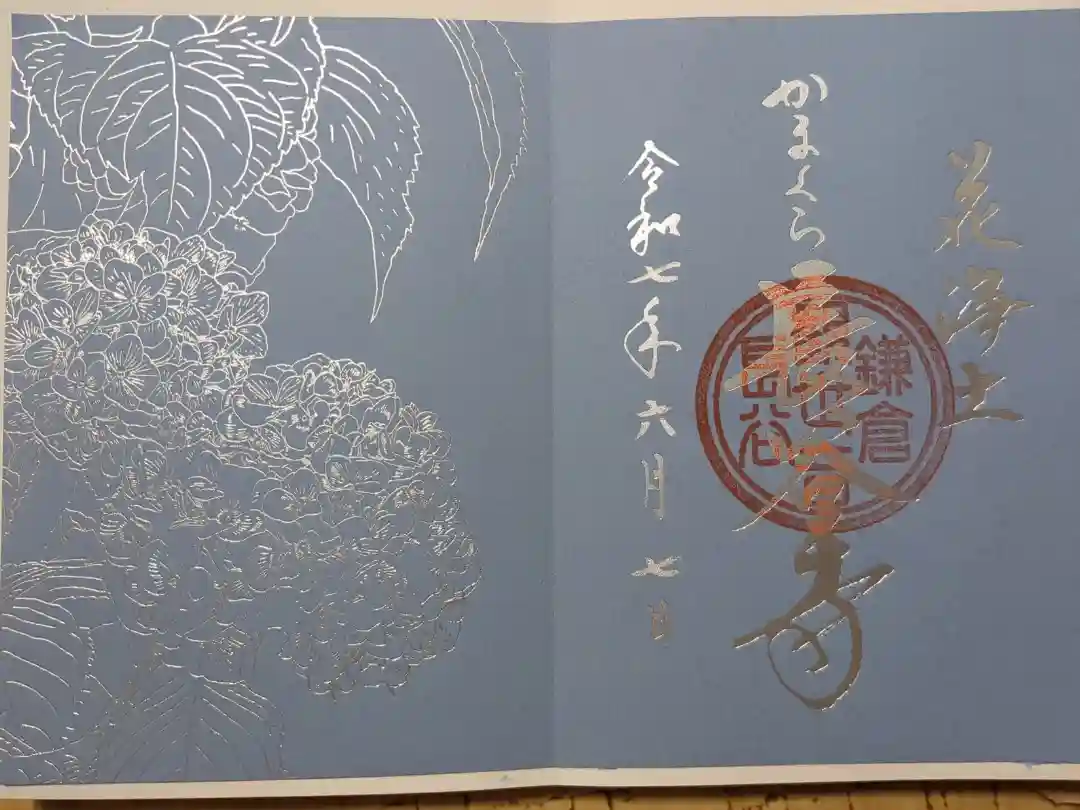 花浄土
かまくら長谷寺
鎌倉
長谷
令和七年六月七日